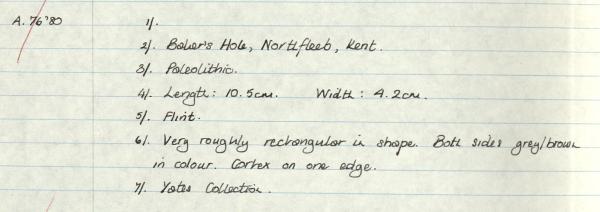 A. 76'80 1/.
2/. Baker's Hole, Northfleet, Kent.
3/. Paleolithic.
4/. Length: 10.5cm. Width: 4.2cm.
5/. Flint.
6/. Very roughly rectangular in shape. Both sides grey/brown
in colour. Cortex on one edge.
7/. Yates Collection.